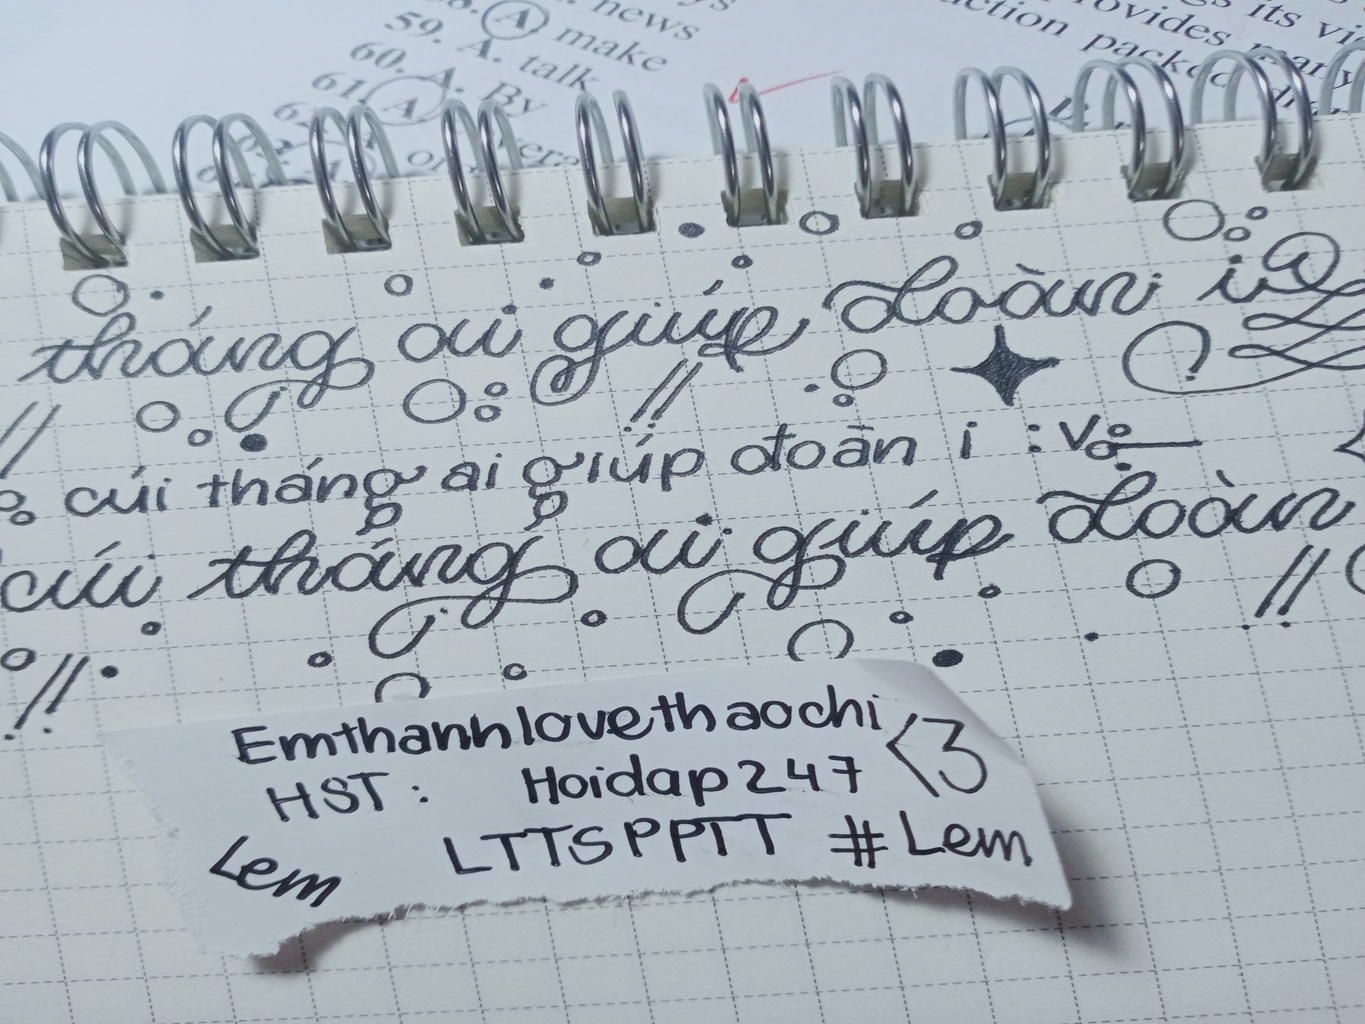 news
A make
59. A. talk
60. A. By
61. A
its
provides many
action packed
tháng ai giúp đoàn i
cúi tháng ai giúp đoàn i :Vo
cúi tháng ai giúp đoàn
Emthanhlovethaochi
HST: Hoidap247 <3
LTTSPPTT #Lem
Lem